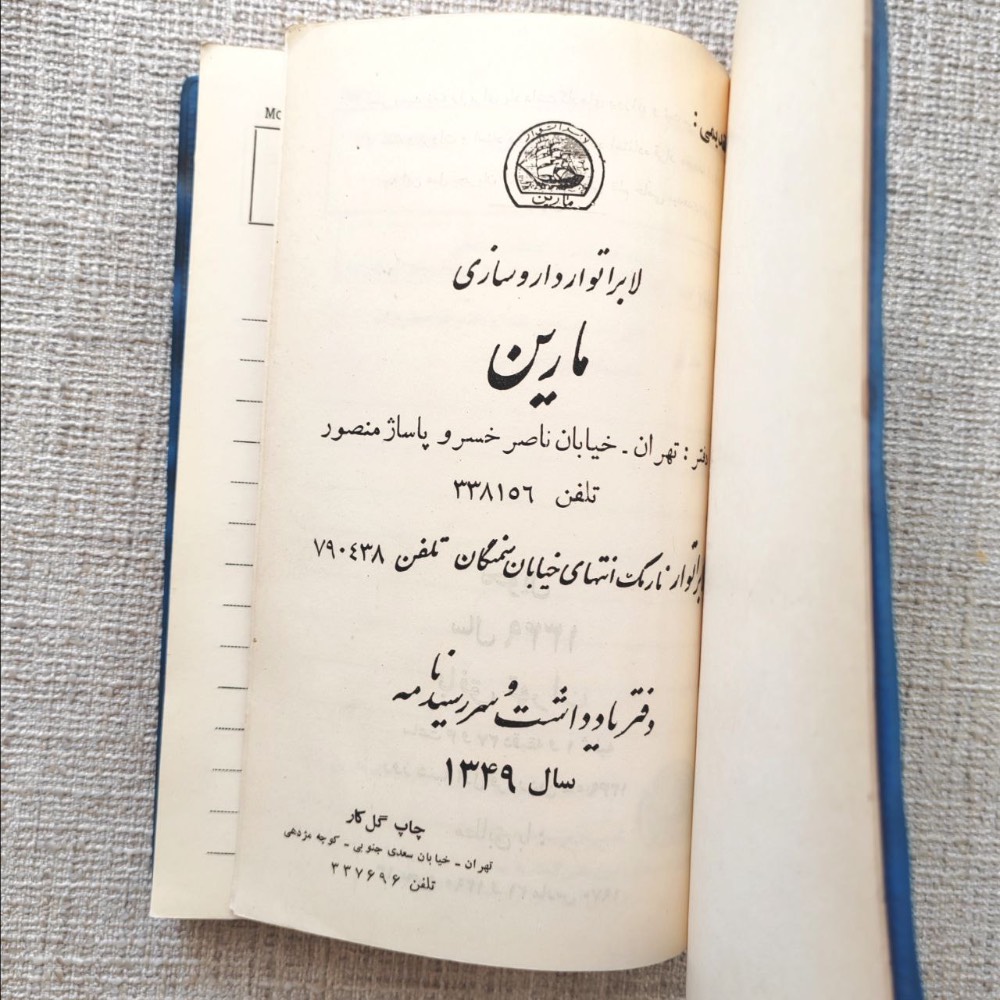 لابراتوار
مارین
لابراتوار داروسازی
مارین
دفتر : تهران ـ خیابان ناصر خسرو پاساژ منصور
تلفن ۳۳۸۱۵۶
لابراتوار نارمک انتهای خیابان سمنگان تلفن ۷۹۰٤۳۸
دفتر یادداشت و سررسید نامه
سال ۱۳۴۹
چاپ گل کار
تهران ـ خیابان سعدی جنوبی ـ کوچه مژدهی
تلفن ۳۳۷۶۹۶
Mo